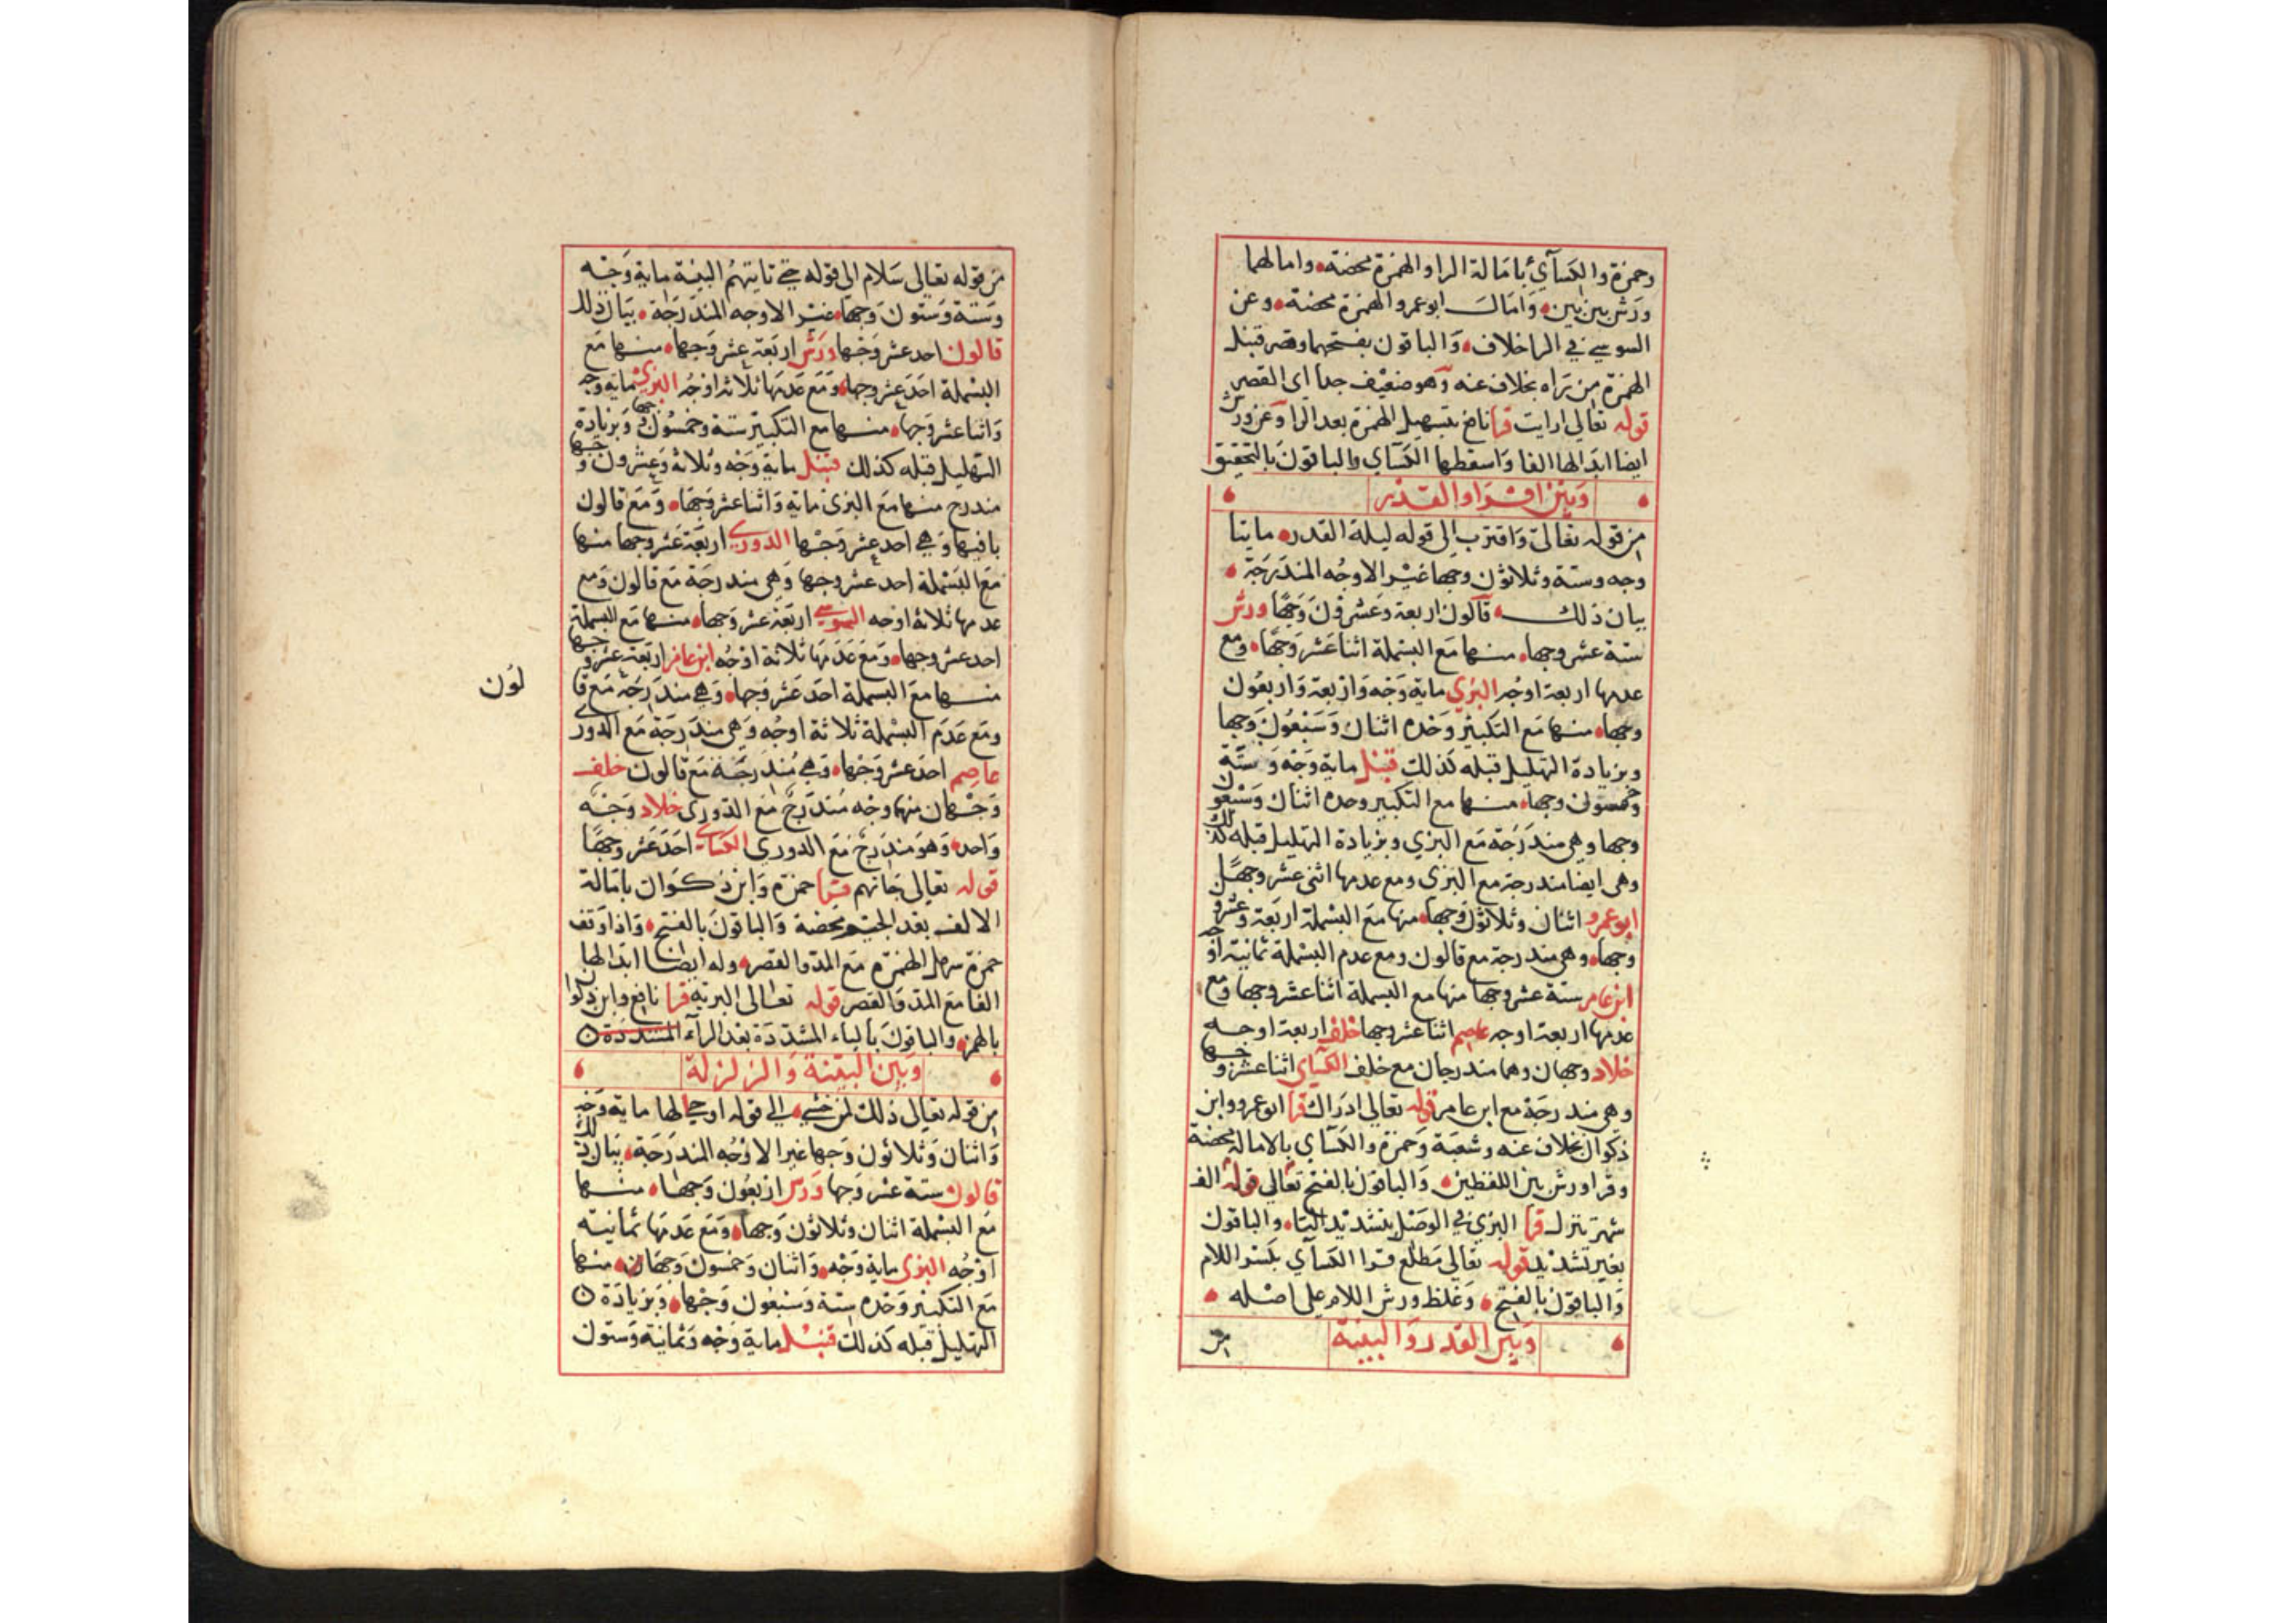 وحمزة والكسآي بامالة الرا والهمزة محضة وامالهما
ورش بين بين وامال ابو عمرو الهمزة محضة وعن
السوسي في الرا خلاف والباقون بفتحهما وقصر قنبل
الهمزة من رآه بخلاف عنه وهو ضعيف جدا اى القصر
قوله تعالى ارايت قرا نافع بتسهيل الهمزة بعد الرا وعن ورش
ايضا ابدالها الفا واسقطها الكسآي والباقون بالتحقيق
وبين اقرا والقدر
من قوله تعالى واقترب الى قوله ليلة القدر مايتا
وجه وستة وثلاثون وجها غير الاوجه المندرجة
بيان ذلك قالون اربعة وعشرون وجها ورش
ستة عشر وجها منها مع البسملة اثنا عشر وجها ومع
عدمها اربعة اوجه البزي ماية وجه واربعة واربعون
وجها منها مع التكبير وحده اثنان وسبعون وجها
وبزيادة التهليل قبله كذلك قنبل ماية وجه وستة
وخمسون وجها منها مع التكبير وحده اثنان وسبعون
وجها وهي مندرجة مع البزي وبزيادة التهليل قبله كذلك
وهي ايضا مندرجة مع البزى ومع عدمها اثنى عشر وجها
ابو عمرو اثنان وثلاثون وجها منها مع البسملة اربعة وعشرون
وجها وهي مندرجة مع قالون ومع عدم البسملة ثمانية اوجه
ابن عامر ستة عشر وجها منها مع البسملة اثنا عشر وجها ومع
عدمها اربعة اوجه عاصم اثنا عشر وجها خلف اربعة اوجه
خلاد وجهان وهما مندرجان مع خلف الكساي اثنا عشر وجها
وهي مندرجة مع ابن عامر قوله تعالي ادراك قرا ابو عمرو وابن
ذكوان بخلاف عنه وشعبة وحمزة والكسآي بالامالة محضة
وقرا ورش بين اللفظين والباقون بالفتح تعالي قوله الف
شهر تنزل قرا البزي في الوصل بتشديد التا والباقون
بغير تشديد قوله تعالى مطلع قرا الكسآي بكسر اللام
والباقون بالفتح وغلظ ورش اللام على اصله
وبين القدر والبينة
من
من قوله تعالى سلام الى قوله حتى تاتيهم البينة ماية وجه
وستة وستون وجها غير الاوجه المندرجة بيان ذلك
قالون احد عشر وجها ورش اربعة عشر وجها منها مع
البسملة احد عشر وجها ومع عدمها ثلاثة اوجه البزي ماية وجه
واثنا عشر وجها منها مع التكبير ستة وخمسون وجها وبزيادة
التهليل قبله كذلك قنبل ماية وجه وثلاثة وعشرون وجها
مندرج منها مع البزى ماية واثنا عشر وجها ومع قالون
باقيها وهي احد عشر وجها الدوري اربعة عشر وجها منها
مع البسملة احد عشر وجها وهي مندرجة مع قالون ومع
عدمها ثلاثة اوجه السوسي اربعة عشر وجها منها مع البسملة
احد عشر وجها ومع عدمها ثلاثة اوجه ابن عامر اربعة عشر وجها
منها مع البسملة احد عشر وجها وهي مندرجة مع قا
لون
ومع عدم البسملة ثلاثة اوجه وهي مندرجة مع الدورى
عاصم احد عشر وجها وهي مندرجة مع قالون خلف
وجهان منهما وجه مندرج مع الدورى خلاد وجه
واحد وهو مندرج مع الدوري الكساي احد عشر وجها
قوله تعالى جاتهم قرا حمزة وابن ذكوان بامالة
الالف بعد الجيم محضة والباقون بالفتح واذا وقف
حمزة سهل الهمزة مع المد والقصر وله ايضا ابدالها
الفا مع المد والقصر قوله تعالى البرية قرا نافع وابن ذكوان
بالهمز والباقون بالياء المشددة بعد الرآء المشددة
وبين البينة والزلزلة
من قوله تعالى ذلك لمن خشي الى قوله اوحى لها ماية وجه
واثنان وثلاثون وجها غير الاوجه المندرجة بيان ذلك
قالون ستة عشر وجها ورش اربعون وجها منها
مع البسملة اثنان وثلاثون وجها ومع عدمها ثمانية
اوجه البزى ماية وجه واثنان وخمسون وجهان منها
مع التكبير وحده ستة وسبعون وجها وبزيادة
التهليل قبله كذلك قنبل ماية وجه وثمانية وستون